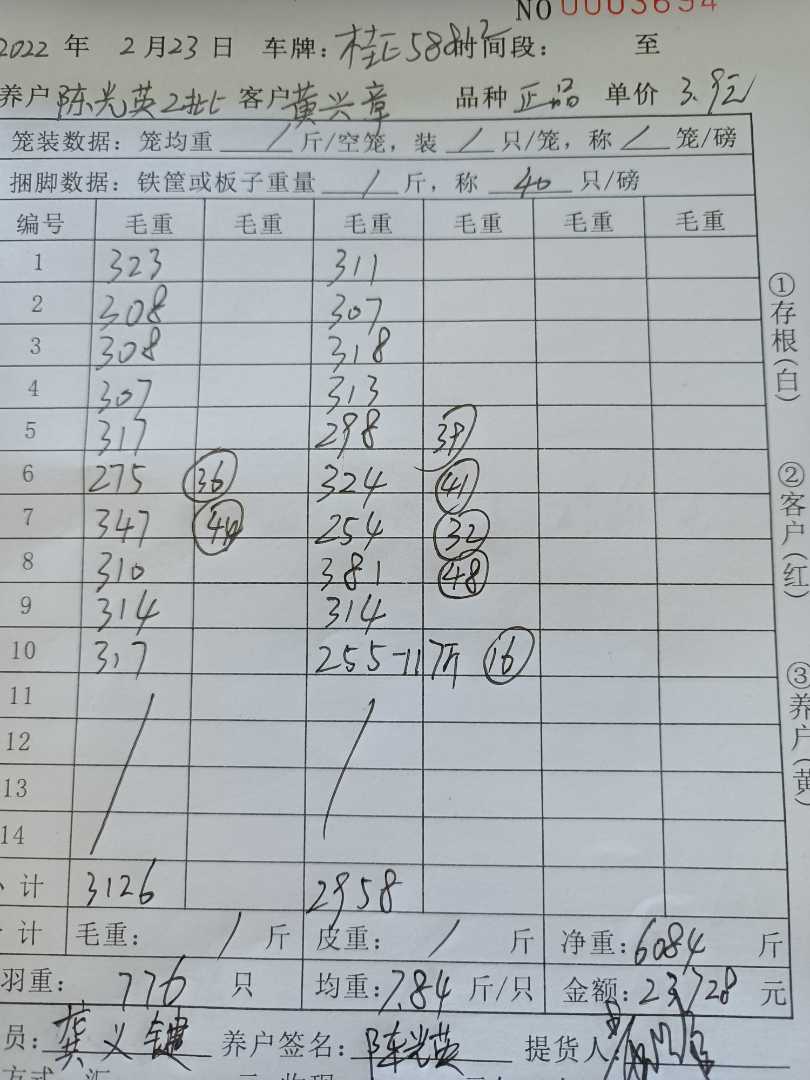 NO 0003694
2022 年 2月23日 车牌: 桂 时间段: 至
养户 陈光英2批 客户 黄兴章 品种 正品 单价 3.9元
笼装数据: 笼均重 / 斤/空笼, 装 / 只/笼, 称 / 笼/磅
捆脚数据: 铁筐或板子重量 / 斤, 称 40 只/磅
编号 毛重 毛重 毛重 毛重 毛重 毛重
1 323 311
2 308 307
3 308 318
4 307 313
5 317 298 39
6 275 36 324 41
7 347 44 254 32
8 310 381 48
9 314 314
10 317 255-11斤 16
11
12
13
14
计 3126 2958
计 毛重: / 斤 皮重: / 斤 净重: 6084 斤
羽重: 776 只 均重: 7.84 斤/只 金额: 23728 元
员: 龚义键 养户签名: 陈光英 提货人:
①存根(白) ②客户(红) ③养户(黄)